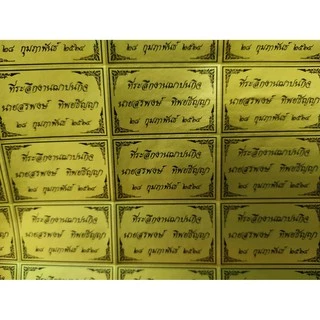 ๒๘ กุมภาพันธ์ ๒๕๖๔ ๒๘ กุมภาพันธ์ ๒๕๖๔
ที่ระลึกงานฌาปนกิจ ที่ระลึกงานฌาปนกิจ ที่ระลึกงานฌาปนกิจ
นายสรพงษ์ ทิพย์ธัญญา นายสรพงษ์ ทิพย์ธัญญา นายสรพงษ์ ทิพย์ธัญญา
๒๘ กุมภาพันธ์ ๒๕๖๔ ๒๘ กุมภาพันธ์ ๒๕๖๔ ๒๘ กุมภาพันธ์ ๒๕๖๔
ที่ระลึกงานฌาปนกิจ ที่ระลึกงานฌาปนกิจ ที่ระลึกงานฌาปนกิจ
นายสรพงษ์ ทิพย์ธัญญา นายสรพงษ์ ทิพย์ธัญญา นายสรพงษ์ ทิพย์ธัญญา
๒๘ กุมภาพันธ์ ๒๕๖๔ ๒๘ กุมภาพันธ์ ๒๕๖๔ ๒๘ กุมภาพันธ์ ๒๕๖๔
ที่ระลึกงานฌาปนกิจ ที่ระลึกงานฌาปนกิจ
นายสรพงษ์ ทิพย์ธัญญา นายสรพงษ์ ทิพย์ธัญญา
๒๘ กุมภาพันธ์ ๒๕๖๔ ๒๘ กุมภาพันธ์ ๒๕๖๔